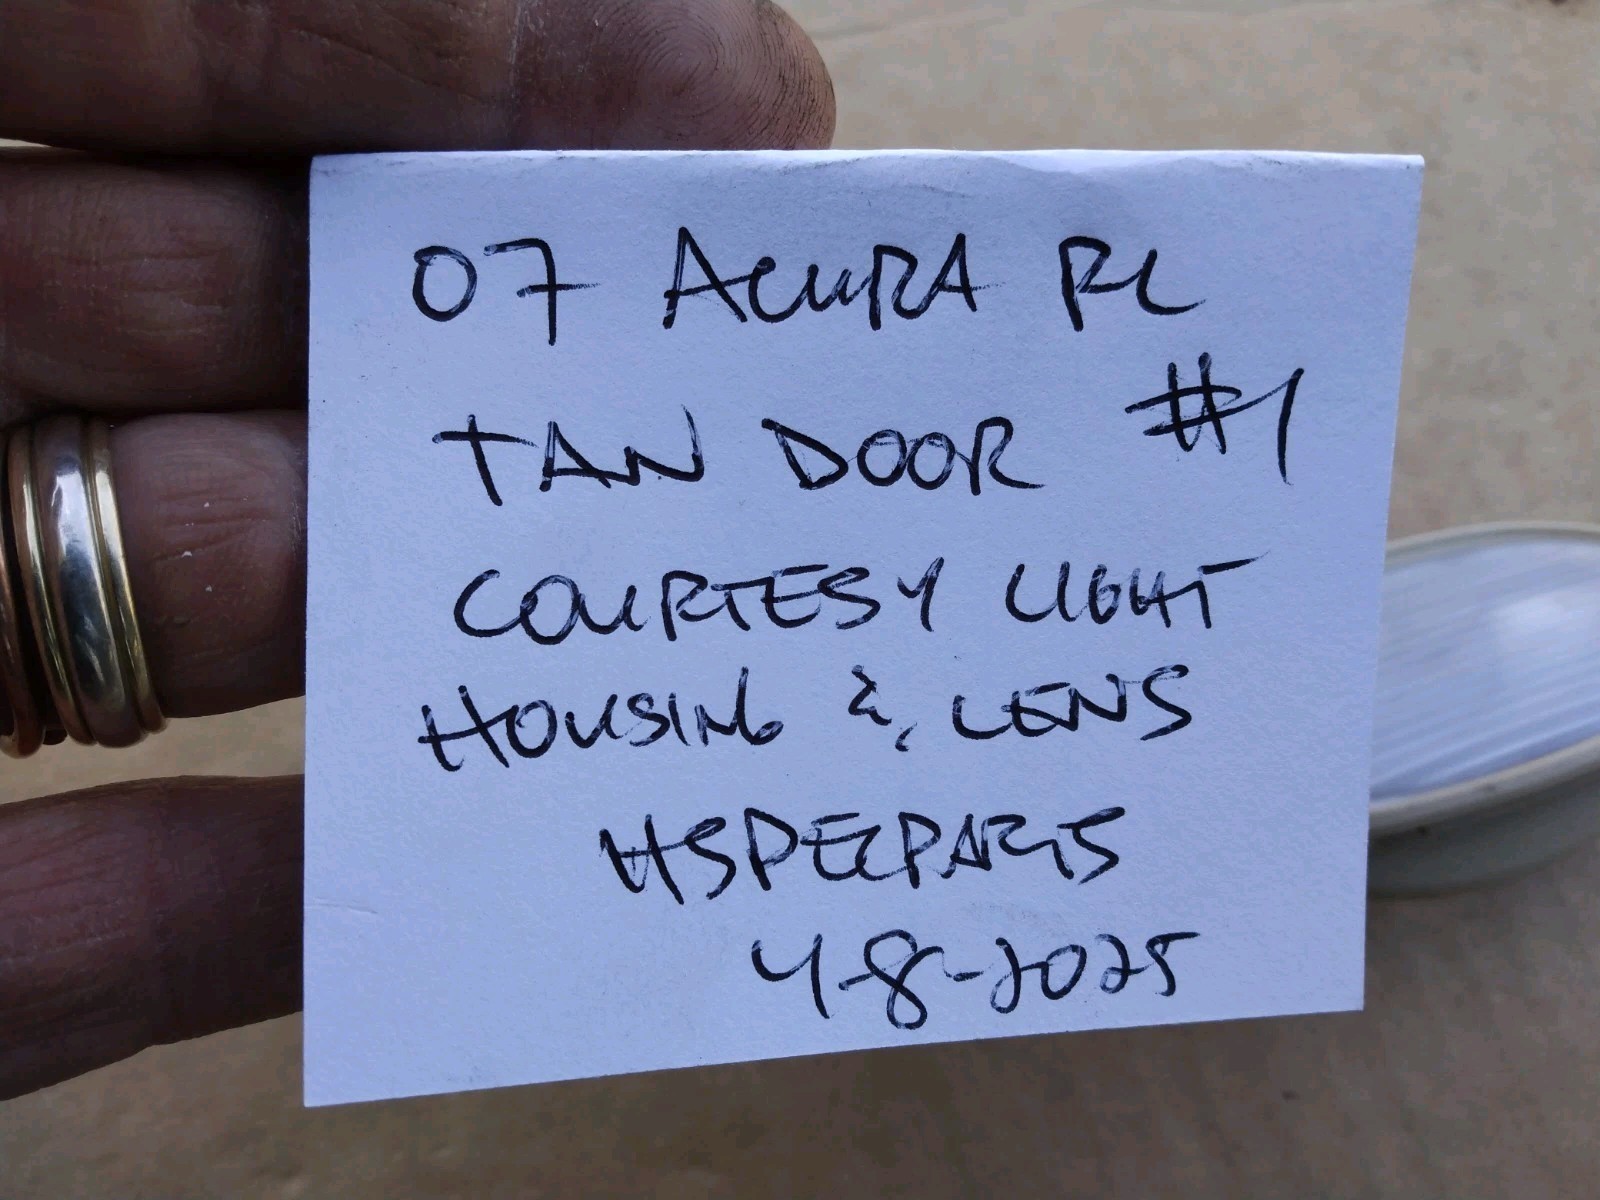 07 ACURA RL
TAN DOOR #1
COURTESY LIGHT
HOUSING & LENS
HSPECPARTS
4-8-2025